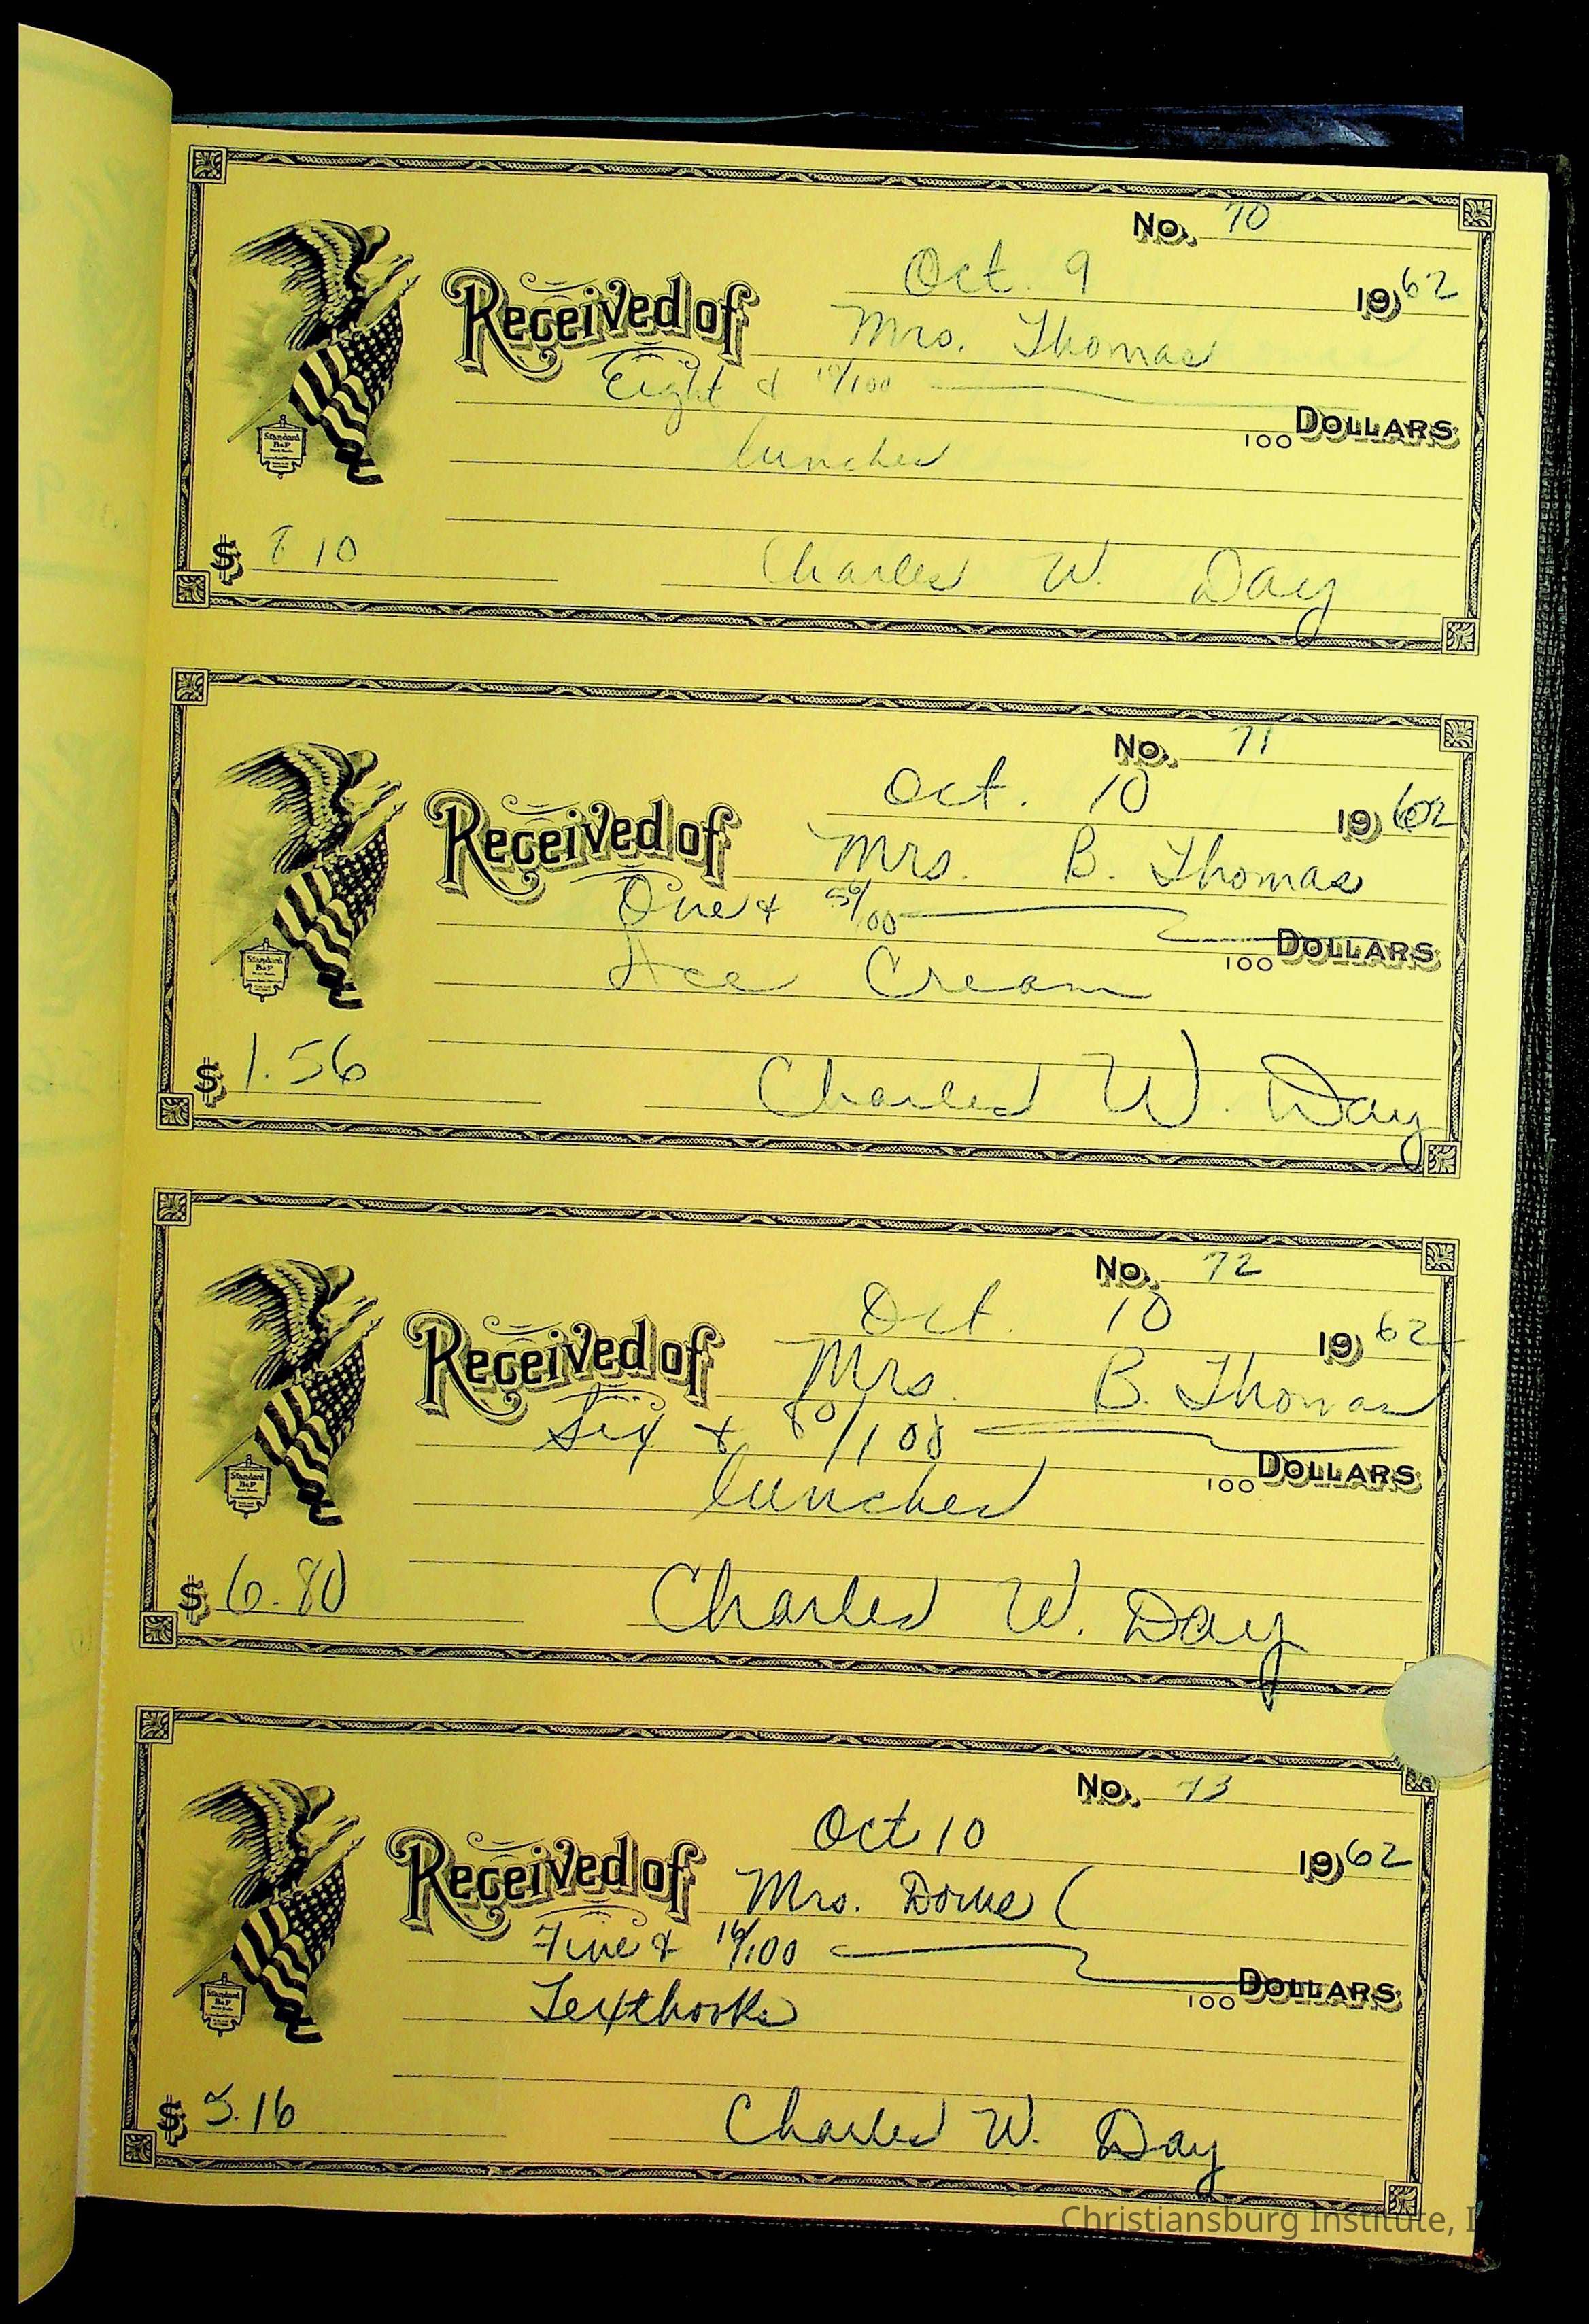 No. 70
Oct. 9 1962
Received of Mrs. Thomas
Eight & 10/100
100 DOLLARS
lunches
$ 8 10 Charles W. Day
Standard B&P
No. 71
Oct. 10 1962
Received of Mrs. B. Thomas
One & 56/100
100 DOLLARS
Ice Cream
$ 1.56 Charles W. Day
Standard B&P
No. 72
Oct. 10 1962
Received of Mrs. B. Thomas
Six & 80/100
100 DOLLARS
lunches
$ 6.80 Charles W. Day
Standard B&P
No. 73
Oct 10 1962
Received of Mrs.
Five & 16/100
100 DOLLARS
Textbooks
$ 5.16 Charles W. Day
Standard B&P
Christiansburg Institute, I